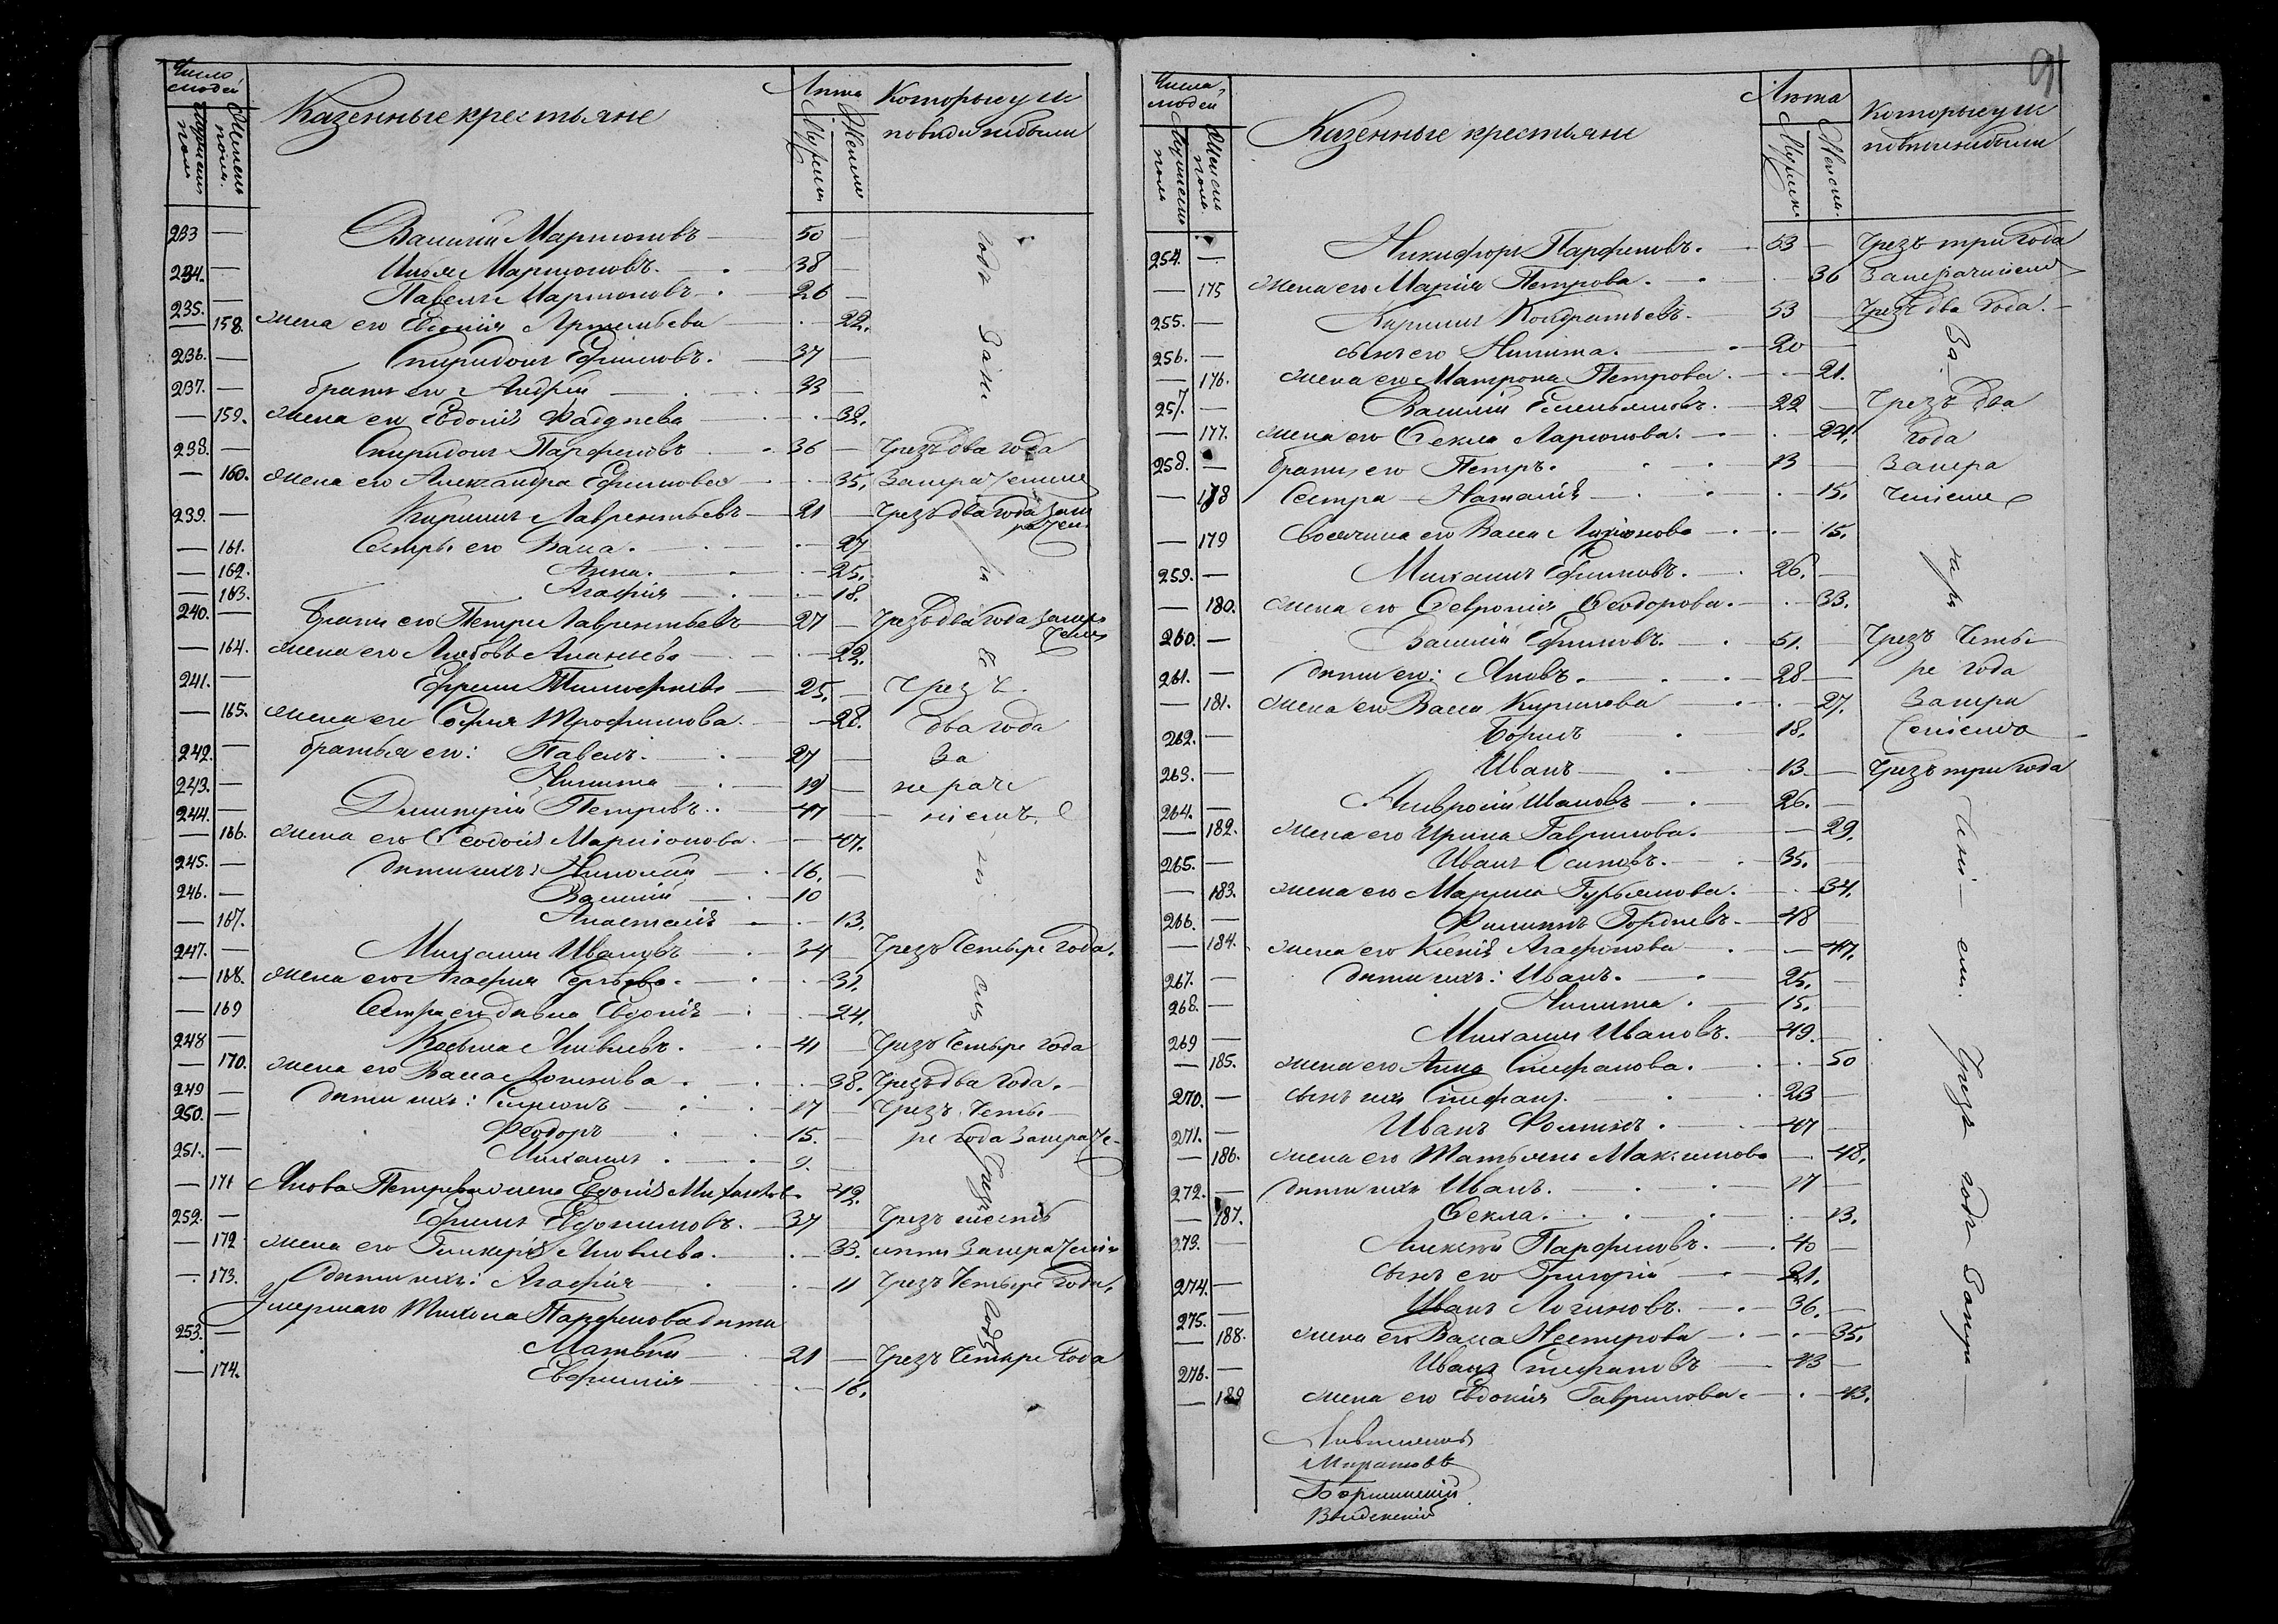 Число людей
Мужеска пола
Женска пола
Казенные крестьяне
Лета
Мужеска
Женска
Которые у исповеди не были
233 — Василий Мартиновъ — 50 —
234. — Мартиновъ. — 38 —
235. — Павелъ Мартиновъ — 26 —
— 158. жена его Евдокія Артемьева — 22.
236. — Спиридонъ Ефимовъ. — 37 —
237. — братъ его Андрей — 33 —
— 159. жена его Евдокія Фадѣева — 32.
238. — Спиридонъ Парфеновъ — 36 — Чрезъ два года
— 160. жена его Александра Ефимова — 35, За нераченіемъ
239. — Кирилъ Лаврентьевъ — 21 — Чрезъ два года За нерачен.
— 161. Сестры его Васса. — 27
— 162. Анна. — 25.
— 163. Агафія — 18.
240. — братъ его Петръ Лаврентьевъ — 27 — Чрезъ два года За нерачен
— 164. жена его Любовь Ананьева — 22.
241. — Ефремъ Тимофеевъ — 25. — Чрезъ
— 165. жена его Софья Трофимова — 28. два года
242. — братья его: Павелъ. — 27 — За
243. — Никита — 19 — нераче
244. — Димитрій Петровъ. — 47 — ніемъ
— 166. жена его Феодосія Маріонова — 47.
245. — дети ихъ: Николай — 16. —
246. — Василій — 10
— 167. Анастасія — 13.
247. — Михаилъ Ивановъ — 34 — Чрезъ Четыре года.
— 168. жена его Агафья Сергѣева. — 31.
— 169 Сестра его дѣвка Евдокія — 24.
248 — Косьма Яковлевъ. — 41 — Чрезъ Четыре года
— 170. жена его Васса Логинова. — 38. Чрезъ два года.
249 — дети ихъ: Симеонъ — 17 — Чрезъ Четы
250. — Феодоръ — 15. — ре года За нераче
251. — Михаилъ. — 9.
— 171 Якова Петрова жена Евдокія Михайлова — 42.
252. — Ефимъ Евдокимовъ. — 37 — Чрезъ шесть
— 172 жена его Гликерія Яковлева. — 33. летъ За нераченіе
— 173. дети ихъ: Агафія — 11 Чрезъ Четыре года,
Умершаго Тихона Парфенова дети
253. — Матвѣй — 21 — Чрезъ Четыре Года
— 174. Евфимія — 16.
91
Число людей
Мужеска пола
Женска пола
Казенные крестьяне
Лета
Мужеска
Женска.
Которые у исповеди не были
254. — Никифоръ Парфеновъ. — 53 — Чрезъ три года
— 175 жена его Марія Петрова. — 36 За нераченіемъ
255. — Кирилъ Кондратьевъ. — 53 — Чрезъ два года. —
256. — сынъ его Никита. — 20 —
— 176. жена его Матрона Петрова. — 21.
257. — Василій Емельяновъ. — 22 — Чрезъ два
— 177. жена его Фекла Ларионова. — 24. года
258. — братъ его Петръ. — 13 — За нера
— 178 Сестра Наталія — 15. ченіемъ
— 179 Своячина его Васса — 15.
259. — Михаилъ Ефимовъ. — 26. —
— 180. жена его Февронія Феодорова. — 33.
260. — Василій Ефимовъ. — 51. — Чрезъ Четы
261. — дети его: Яковъ. — 28 — ре года
— 181. жена его Васса Кирилова — 27. За нера
262. — Борисъ — 18. ченіемъ
263. — Иванъ — 13. — Чрезъ три года
264. — Амвросій Ивановъ — 26. —
— 182. жена его Ирина Гаврилова. — 29.
265. — Иванъ Осиповъ. — 35. —
— 183. жена его Марина Гурьянова. — 34.
266. — Филиппъ Гордѣевъ — 48 —
— 184. жена его Ксенія Агафонова — 47.
267. — дети ихъ: Иванъ. — 25. —
268. — Никита. — 15. —
269 — Михаилъ Ивановъ. — 49. —
— 185. жена его Анна Стефанова. — 50
270. — сынъ ихъ Стефанъ. — 23 —
271. — Иванъ Фоминъ. — 47 —
— 186. жена его Татьяна Максимова — 48.
272. — дети ихъ Иванъ. — 17 —
— 187. Фекла. — 13.
273. — Алексѣй Парфеновъ. — 40 —
274. — сынъ его Григорій — 21.
275. — Иванъ Логиновъ. — 36. —
— 188. жена его Васса Нестерова — 35.
276. — Иванъ Стефановъ — 43 —
— 189 жена его Евдокія Гаврилова. — 43.
Чрезъ годъ За нера